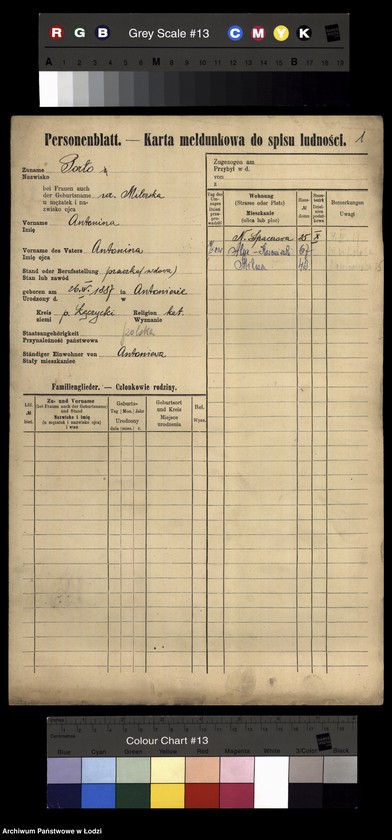 R G B Grey Scale #13 C M Y K
A 1 2 3 4 5 6 M 8 9 10 11 12 13 14 15 B 17 18 19
Personenblatt. — Karta meldunkowa do spisu ludności. 1
Zuname
Nazwisko
Porło
bei Frauen auch
der Geburtsname
u mężatek i na-
zwisko ojca
ur. Milerska
Vorname
Imię
Antonina
Vorname des Vaters
Imię ojca
Antonina
Stand oder Berufsstellung
Stan lub zawód
praczka (wdowa)
geboren am 26. VI. 1887 in Antoniewie
Urodzony d. w
Kreis
ziemi
p. Łęczycki
Religion
Wyznanie
kat.
Staatsangehörigkeit
Przynależność państwowa
polska
Ständiger Einwohner von
Stały mieszkaniec
Antoniewa
Zugezogen am
Przybył w d.
von
z
Wohnung
(Strasse oder Platz)
Mieszkanie
(ulica lub plac)
Bemerkungen
Uwagi
N. Spacerowa 25 X
67
46
Familienglieder. — Członkowie rodziny.
Zu- und Vorname
bei Frauen auch der Geburtsname
und Stand
Nazwisko i imię
(u mężatek i nazwisko ojca)
i stan
Geburts-
Tag Mon. Jahr
Urodzony
dnia mies. r.
Geburtsort
und Kreis
Miejsce
urodzenia
Rel.
Wyzn.
Colour Chart #13
Blue Cyan Green Yellow Red Magenta White 3/Color Black
Archiwum Państwowe w Łodzi